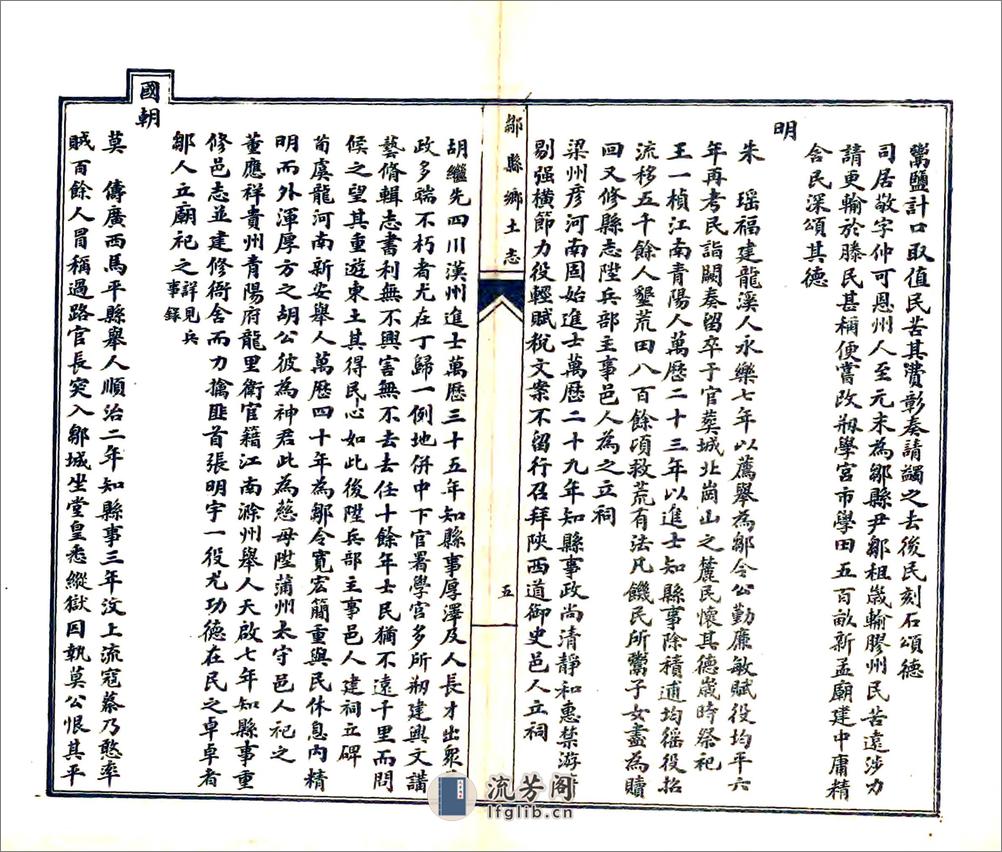 鬻鹽計口取值民苦其瀆彰奏請蠲之去後民刻石頌德
司居敬字仲可恩州人至元末為鄒縣尹鄒租歲輸膠州民苦遠涉力
請更輸於滕民甚稱便嘗改剏學宮市學田五百畝新孟廟建中庸精
舍民深頌其德
明
朱瑶福建龍溪人永樂七年以薦舉為鄒令公勤廉敏賦役均平六
年再考民詣闕奏留卒于官葬城北崗山之麓民懷其德歲時祭祀
王一楨江南青陽人萬歷二十三年以進士知縣事除積逋均徭役招
流移五千餘人墾荒田八百餘頃救荒有法凡饑民所鬻子女盡為贖
回又修縣志陞兵部主事邑人為之立祠
梁州彦河南固始進士萬歷二十九年知縣事政尚清靜和惠禁游
剔强橫節力役輕賦稅文案不留行召拜陝西道御史邑人立祠
鄒縣鄉土志
五
胡繼先四川漢州進士萬歷三十五年知縣事厚澤及人長才出衆
政多端不朽者尤在丁歸一例地併中下官署學宮多所剏建興文講
藝脩輯志書利無不興害無不去去任十餘年士民猶不遠千里而問
候之望其重遊東土其得民心如此後陞兵部主事邑人建祠立碑
荀虞龍河南新安舉人萬歷四十年為鄒令寬宏簡重與民休息內精
明而外渾厚方之胡公彼為神君此為慈母陞蒲州太守邑人祀之
董應祥貴州青陽府龍里衛官籍江南滁州舉人天啟七年知縣事重
修邑志並建修衙舍而力擒匪首張明宇一役尤功德在民之卓卓者
鄒人立廟祀之詳見兵事錄
國朝
莫傳廣西馬平縣舉人順治二年知縣事三年汶上流寇蔡乃憨率
賊百餘人冒稱過路官長突入鄒城坐堂皇悉縱獄囚執莫公恨其平
流芳阁
lfglib.cn